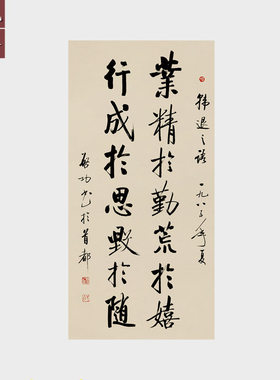 韓退之語 一九八三年夏
業精於勤荒於嬉
行成於思毀於隨
啟功書於首都